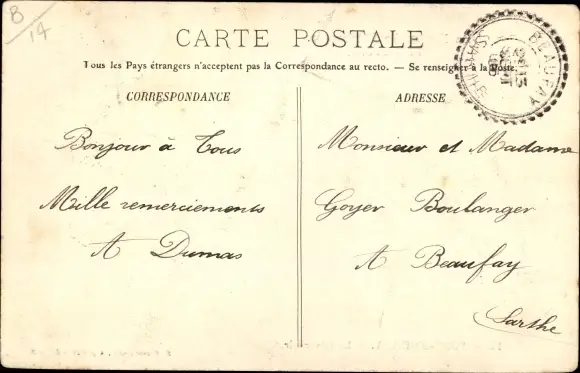 B
14
CARTE POSTALE
Tous les Pays étrangers n'acceptent pas la Correspondance au recto. — Se renseigner à la Poste.
BEAUFAY
CORRESPONDANCE
ADRESSE
Bonjour à Tous
Mille remerciements
A Dumas
Monsieur et Madame
Goyer Boulanger
A Beaufay
Sarthe